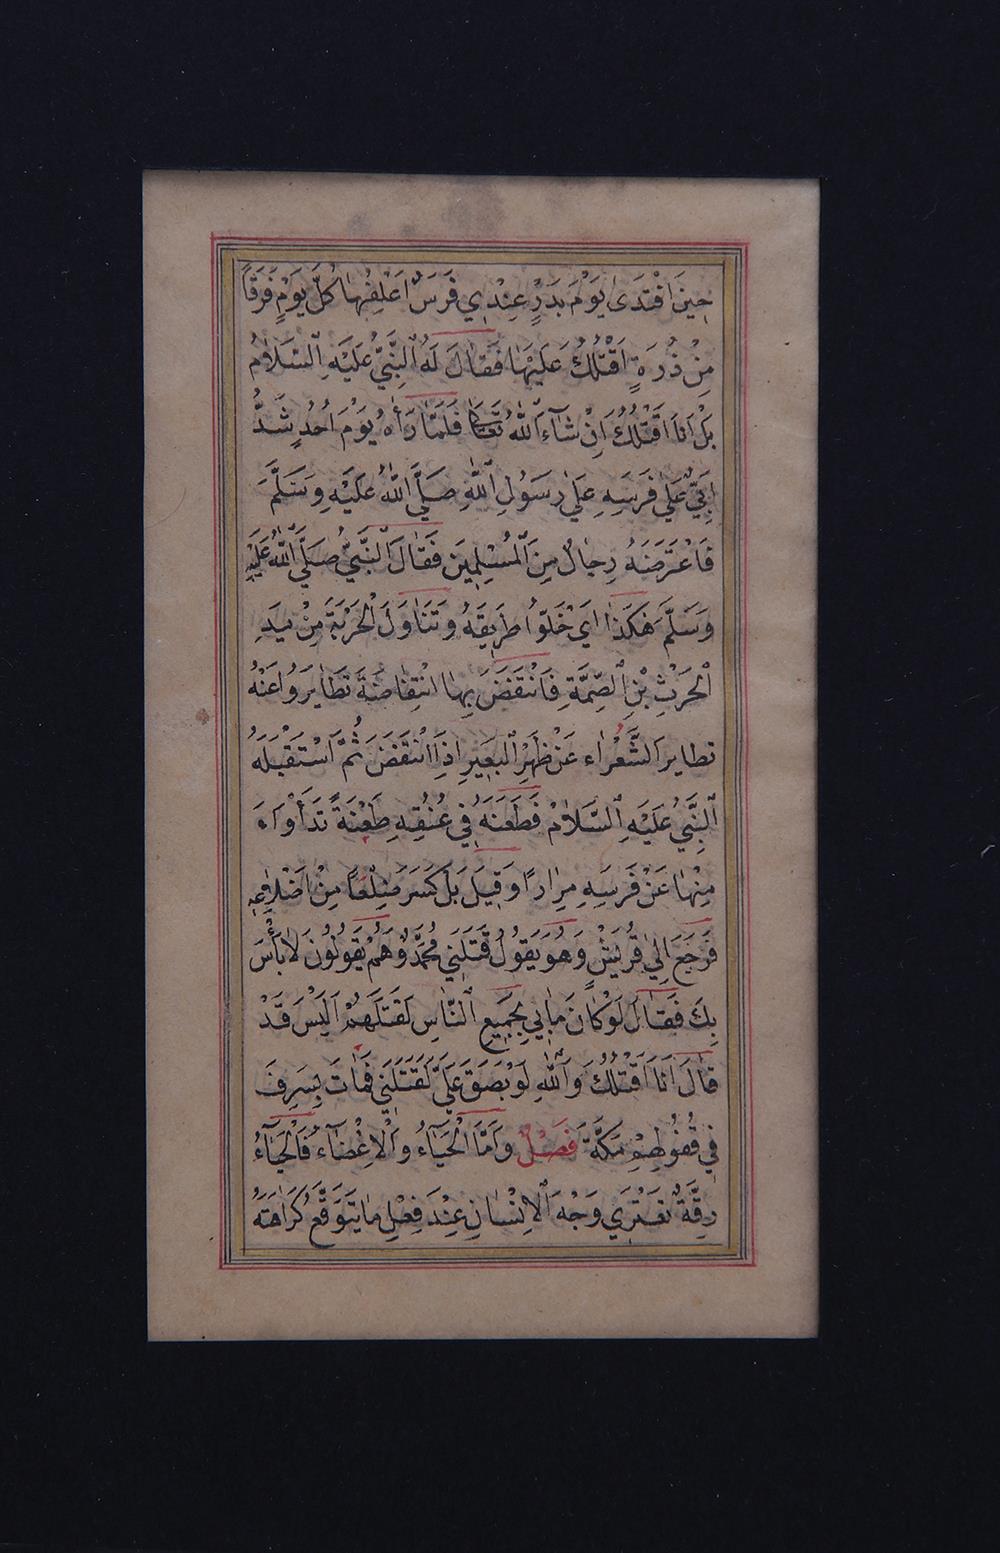 حِينَ افْتَدَى يَوْمَ بَدْرٍ عِنْدِي فَرَسٌ اَعْلِفُهَا كُلَّ يَوْمٍ فَرَقًا
مِنْ ذُرَةٍ اَقْتُلُكَ عَلَيْهَا فَقَالَ لَهُ النَّبِيُّ عَلَيْهِ السَّلَامُ
بَلْ اَنَا اَقْتُلُكَ اِنْ شَاءَ اللهُ تَعَالَى فَلَمَّا رَآهُ يَوْمَ اُحُدٍ شَدَّ
اُبَيٌّ عَلَى فَرَسِهِ عَلَى رَسُولِ اللهِ صَلَّى اللهُ عَلَيْهِ وَسَلَّمَ
فَاعْتَرَضَهُ رِجَالٌ مِنَ الْمُسْلِمِينَ فَقَالَ النَّبِيُّ صَلَّى اللهُ عَلَيْهِ
وَسَلَّمَ هَكَذَا اَيْ خَلُّوا طَرِيقَهُ وَتَنَاوَلَ الْحَرْبَةَ مِنْ يَدِ
الْحَرْثِ بْنِ الصِّمَّةِ فَانْتَفَضَ بِهَا انْتِفَاضَةً تَطَايَرُوا عَنْهُ
تطاير الشَّعْرَاء عَنْ ظَهْرِ الْبَعِيرِ اِذَا انْتَفَضَ ثُمَّ اسْتَقْبَلَهُ
النَّبِيُّ عَلَيْهِ السَّلَامُ فَطَعَنَهُ فِي عُنُقِهِ طَعْنَةً تَدَأْدَاءَ
مِنْهَا عَنْ فَرَسِهِ مِرَارًا وَقِيلَ بَلْ كَسَرَ ضِلْعًا مِنْ اَضْلَاعِهِ
فَرَجَعَ اِلَى قُرَيْشٍ وَهُوَ يَقُولُ قَتَلَنِي مُحَمَّدٌ وَهُمْ يَقُولُونَ لَا بَأْسَ
بِكَ فَقَالَ لَوْ كَانَ مَا بِي بِجَمِيعِ النَّاسِ لَقَتَلَهُمْ اَلَيْسَ قَدْ
قَالَ اَنَا اَقْتُلُكَ وَاللهِ لَوْ بَصَقَ عَلَيَّ لَقَتَلَنِي فَمَاتَ بِسَرِفَ
فِي قُفُولِهِمْ مَكَّةَ فَصْلٌ وَاَمَّا الْحَيَاءُ وَالْاِغْضَاءُ فَالْحَيَاءُ
رِقَّةٌ تَعْتَرِي وَجْهَ الْاِنْسَانِ عِنْدَ فِعْلِ مَا يَتَوَقَّعُ كَرَاهَتَهُ